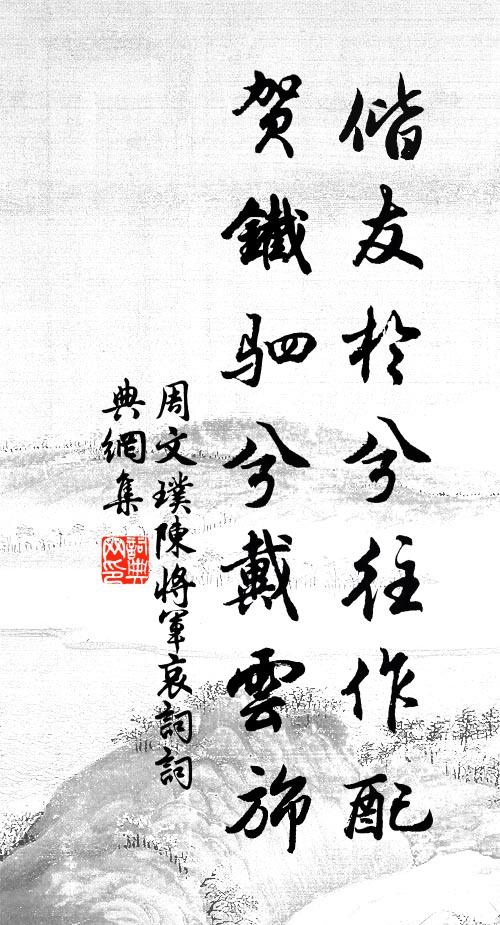 偕友於兮往作配
贺鐵驷兮戴雲旆
周文璞陳將軍哀詞詞
典網集
詞典
网印